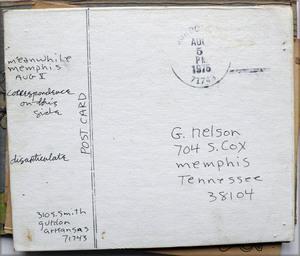 meanwhile
memphis
AUG I
correspondence
on this
side
disarticulate
310 S. Smith
gurdon
arkansas
71743
POST CARD
AUG
5
PM
1975
71743
G. Nelson
704 S. Cox
memphis
Tennessee
38104